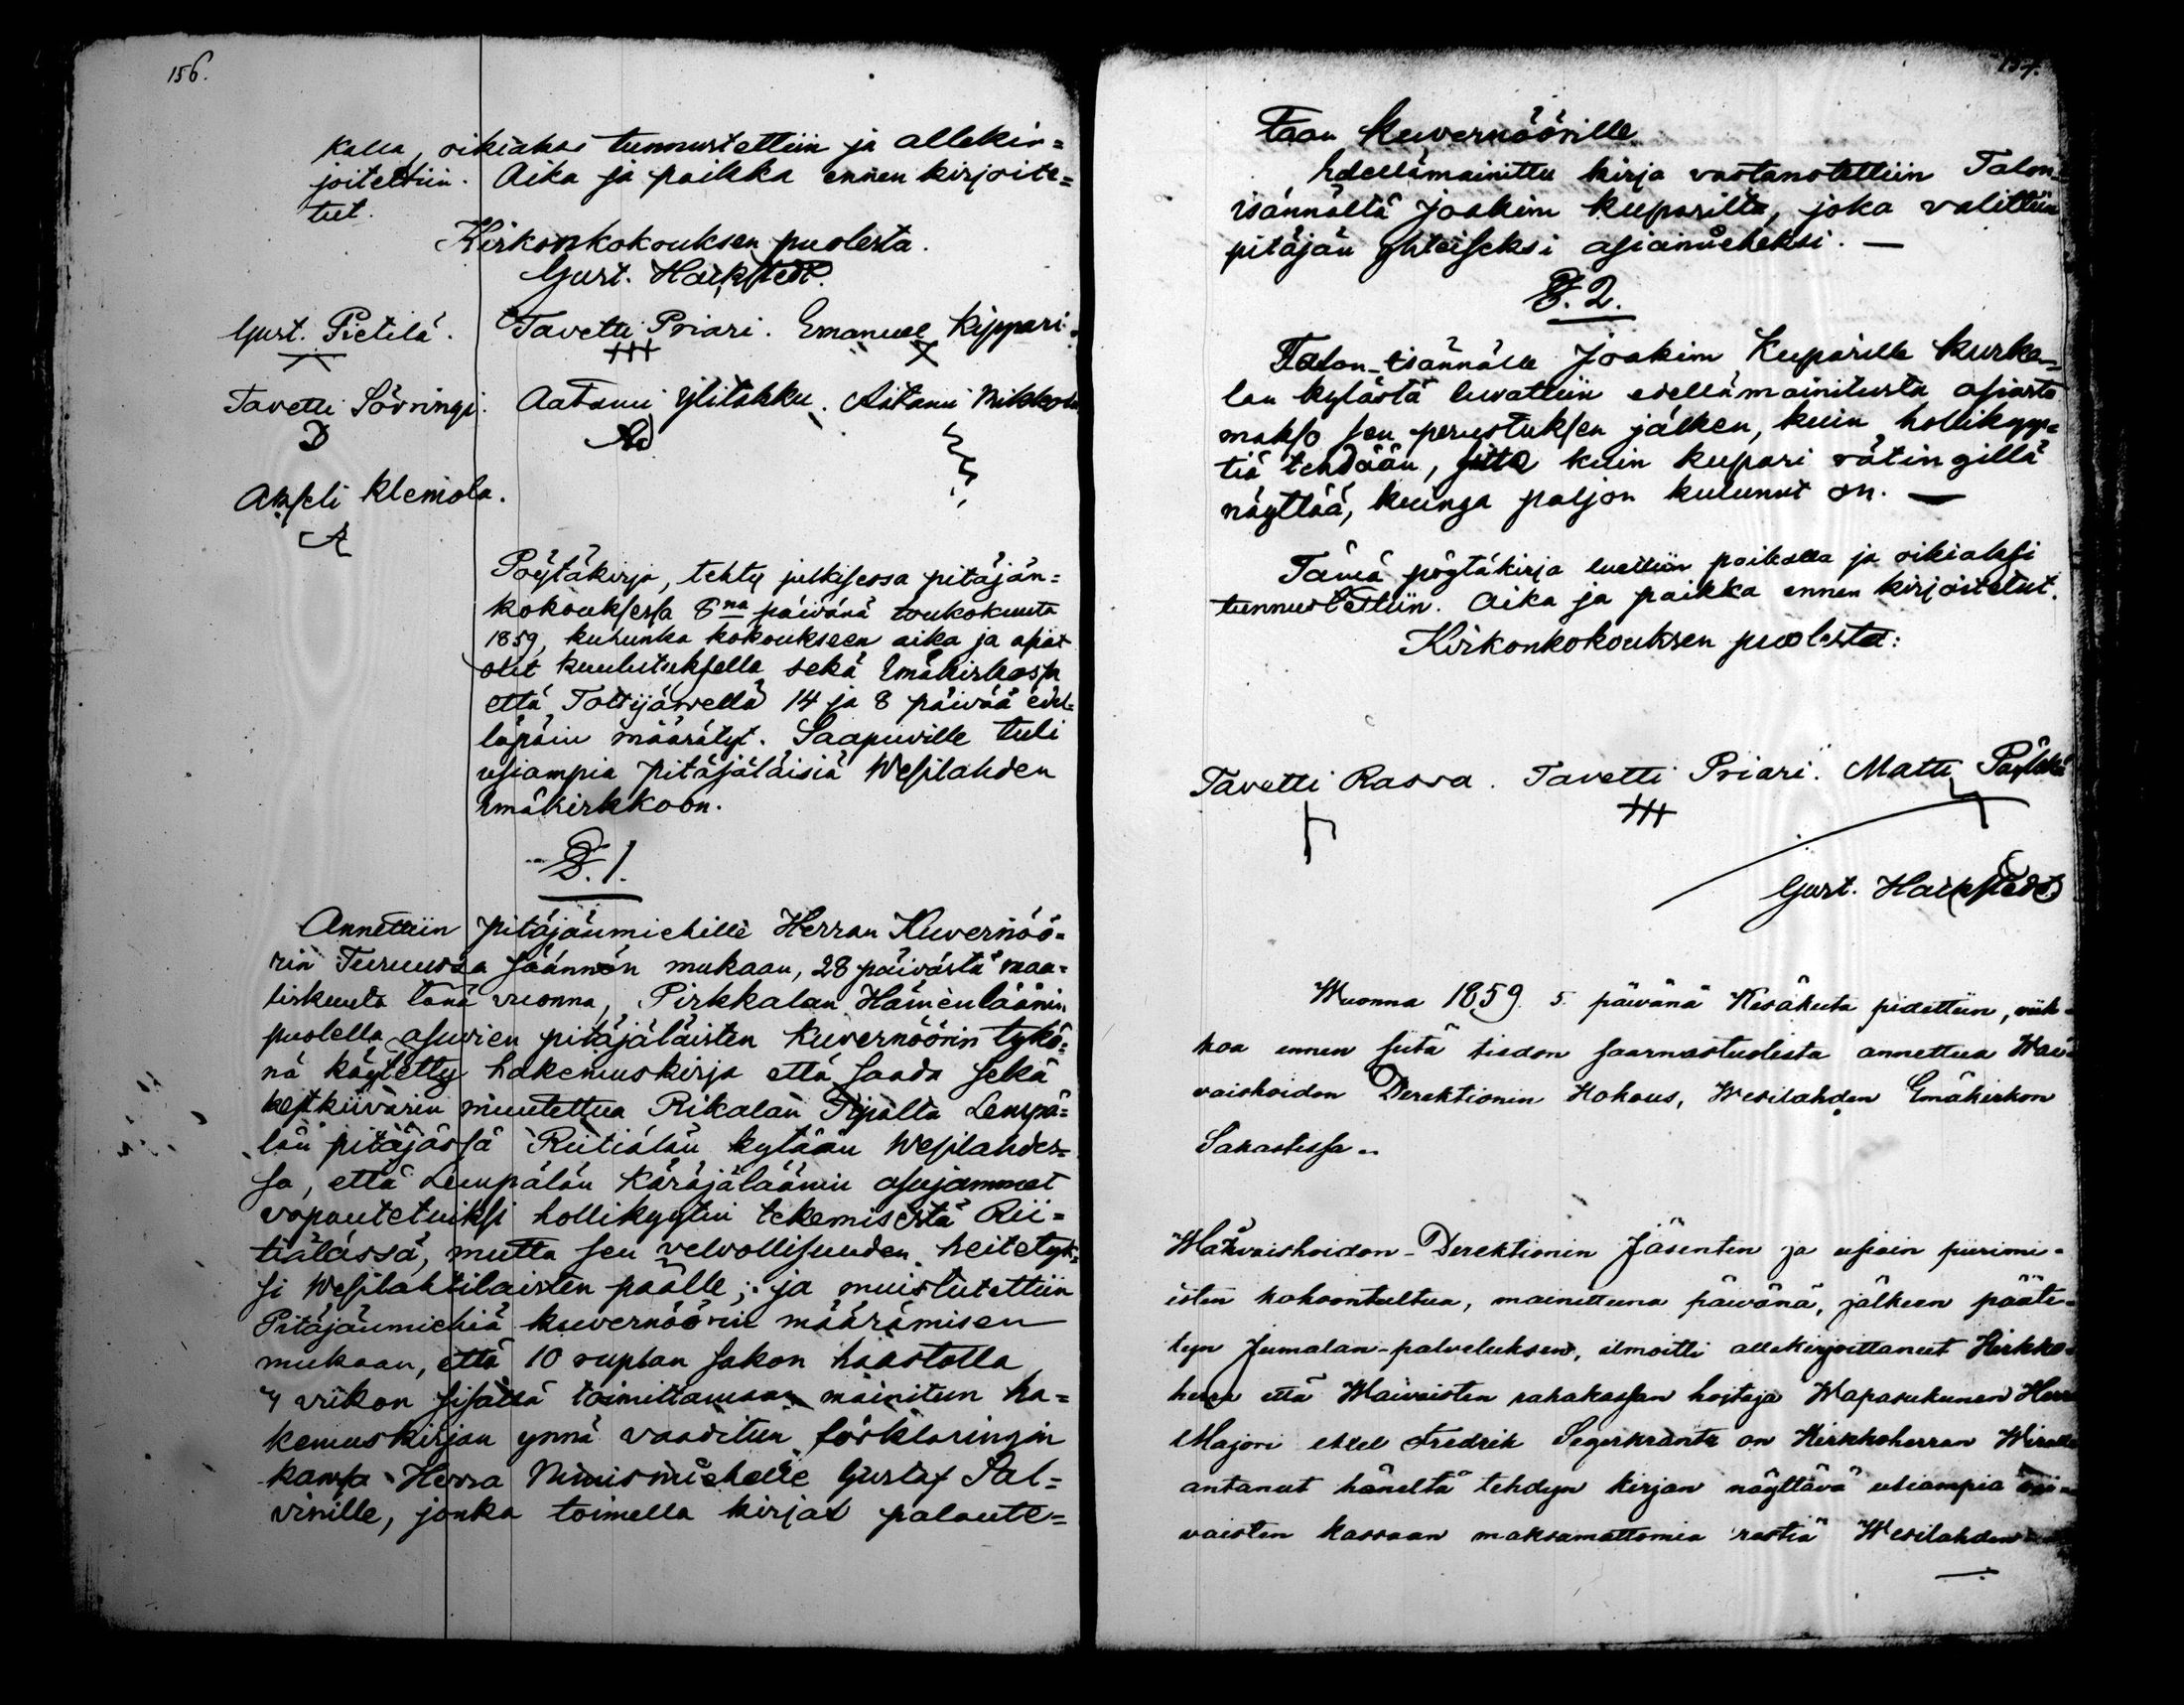 156.
kalla, oikiaksi tunnustettiin ja allekir=
joitettiin. Aika ja paikka ennen kirjoite=
tut.
Kirkonkokouksen puolesta.
Gust. Hackstedt.
Gust. Pietilä. Tavetti Priari. Emanuel Kippari.
Tavetti Sörringi. Aatami Ylitakku. Aatami Mikkola
Akseli Klemola.
A
Pöytäkirja, tehty julkisessa pitäjän=
kokouksessa 8na päivänä toukokuuta
1859, kuhunka kokoukseen aika ja asiat
olit kuulutuksella sekä Emäkirkossa
että Tottijärvellä 14 ja 8 päivää edel=
läpäin määrätyt. Saapuville tuli
usiampia pitäjäläisiä Wesilahden
Emäkirkkoon.
§. 1.
Annettiin pitäjänmiehille Herran Kuvernöö=
rin Turuussa säännön mukaan, 28 päivästä maa=
liskuuta tänä vuonna, Pirkkalan Hämeenläänin
puolella asuvien pitäjäläisten Kuvernöörin tykö=
nä käytetty hakemuskirja että saada sekä
kestkiivarin muutettua Rikalan Tipalta Lempä=
län pitäjässä Riitialan kylään Wesilahdes=
sa, että Lempälän Käräjäläänin asujammet
vapautetuiksi hollikyytin tekemisestä Rii=
tialassa, mutta sen velvollisuuden heitetyk=
si Wesilahtilaisten päälle; ja muistutettiin
Pitäjänmiehiä kuvernöörin määrämisen
mukaan, että 10 ruplan sakon haastolla
4 viikon sisällä toimittamaan mainitun ha=
kemuskirjan ynnä vaaditun förklaringin
kanssa Herra Nimismiehelle Gustaf Sal=
vinille, jonka toimella kirjat palaute=
157.
taan Kuvernöörille.
Edellämainittu kirja vastanotettiin Talon=
isännältä Joakim Kuparilta, joka valittiin
pitäjän yhteiseksi asiamieheksi. —
§. 2.
Talon-isännälle Joakim Kuparille Kurka=
lan kylästä luvattiin edellämainitusta asiasta
makso sen perustuksen jälken, kuin hollikyy=
tiä tehdään, sitte kuin Kupari rätingillä
näyttää, kuinga paljon kulunut on. —
Tämä pöytäkirja luettiin paikalla ja oikiaksi
tunnustettiin. Aika ja paikka ennen kirjoitetut.
Kirkonkokouksen puolesta:
Tavetti Rassa. Tavetti Priari. Matti
Gust. Hackstedt
Wuonna 1859 5. päivänä Kesäkuuta pidettiin, viik=
koa ennen siitä tiedon saarnastuolista annettua Wai=
vaishoidon Derektionin Kokous, Wesilahden Emäkirkon
Sakastissa..
Waivaishoidon-Derektionin Jäsenten ja usiain piirimi=
esten kokoontultua, mainittuna päivänä, jälkeen pääte=
tyn Jumalan-palveluksen, ilmoitti allekirjoittanut Kirkko=
herra että Waivaisten rahakassan hoitaja Wapasukunen Herra
Majori Axel Fredrik Segerkrantz on Kirkkoherran Wiralle
antanut häneltä tehdyn kirjan näyttävä usiampia vai=
vaisten kassaan maksamattomia rästiä Wesilahden